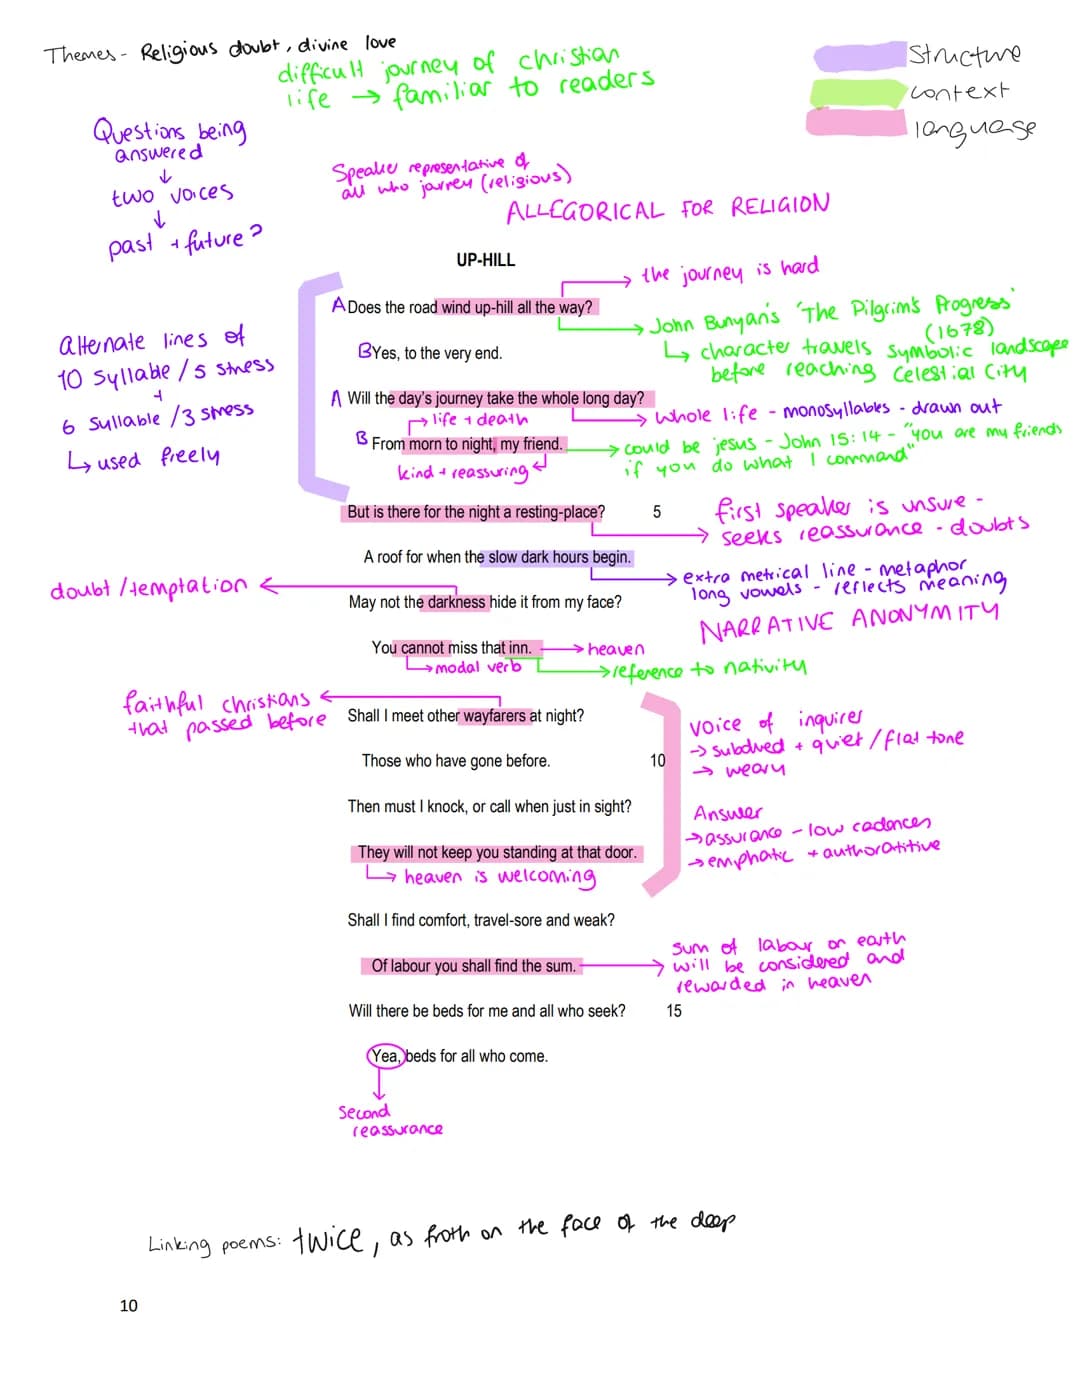 Themes - Religious doubt, divine love
difficult journey of christian
life → familiar to readers
Structure
context
language
Questions being
answered
↓
two voices
↓
past + future?
Speaker representative of
all who journey (religious)
ALLEGORICAL FOR RELIGION
UP-HILL
→ the journey is hard
A Does the road wind up-hill all the way?
→ John Bunyan's 'The Pilgrims Progress'
(1678)
↳ character travels symbolic landscape
before reaching Celestial City
B Yes, to the very end.
alternate lines of
10 syllable / 5 stress
+
6 syllable / 3 stress
↳ used freely
A Will the day's journey take the whole long day?
→ life + death
→ whole life - monosyllables - drawn out
B From morn to night, my friend.
→ could be jesus - John 15:14 - "you are my friends
if you do what I command"
kind + reassuring
But is there for the night a resting-place? 5
first speaker is unsure -
→ seeks reassurance - doubts
A roof for when the slow dark hours begin.
→ extra metrical line - metaphor
long vowels - reflects meaning
doubt / temptation
May not the darkness hide it from my face?
NARRATIVE ANONYMITY
You cannot miss that inn. → heaven
↳ modal verb
→ reference to nativity
faithful christians
that passed before
Shall I meet other wayfarers at night?
voice of inquirer
→ subdued + quiet / flat tone
→ weary
Those who have gone before. 10
Then must I knock, or call when just in sight?
Answer
→ assurance - low cadences
→ emphatic + authoratitive
They will not keep you standing at that door.
↳ heaven is welcoming
Shall I find comfort, travel-sore and weak?
Of labour you shall find the sum.
sum of labour on earth
→ will be considered and
rewarded in heaven
Will there be beds for me and all who seek? 15
Yea, beds for all who come.
Second
reassurance
Linking poems: twice, as froth on the face of the deep
10